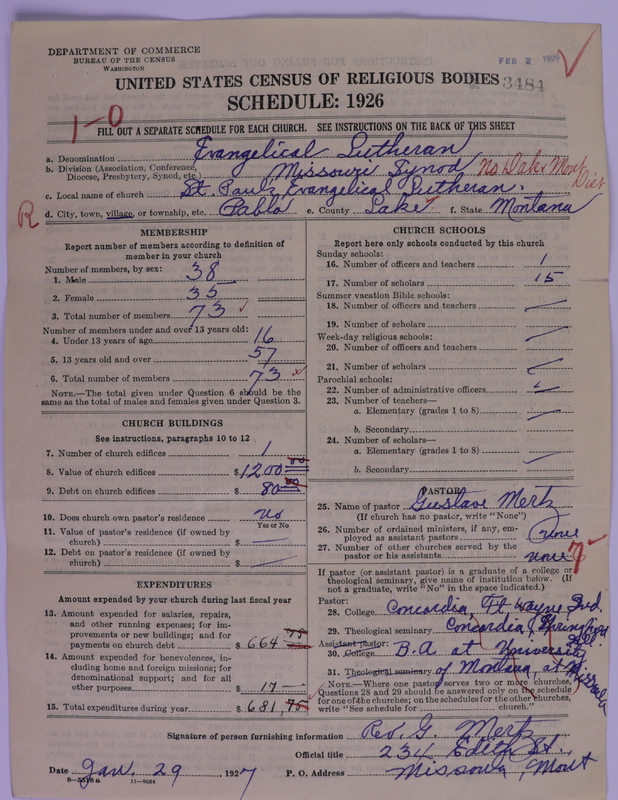 DEPARTMENT OF COMMERCE
BUREAU OF THE CENSUS
WASHINGTON
FEB 2 1927
UNITED STATES CENSUS OF RELIGIOUS BODIES
3484
SCHEDULE: 1926
1-0
FILL OUT A SEPARATE SCHEDULE FOR EACH CHURCH. SEE INSTRUCTIONS ON THE BACK OF THIS SHEET
a. Denomination Evangelical Lutheran
b. Division (Association, Conference, Diocese, Presbytery, Synod, etc.) Missouri Synod No Dak & Mont Dist
c. Local name of church St. Pauls Evangelical Lutheran.
R d. City, town, village, or township, etc. Pablo e. County Lake f. State Montana
MEMBERSHIP
Report number of members according to definition of
member in your church
Number of members, by sex:
1. Male 38
2. Female 35
3. Total number of members 73
Number of members under and over 13 years old:
4. Under 13 years of age 16
5. 13 years old and over 57
6. Total number of members 73
NOTE.—The total given under Question 6 should be the
same as the total of males and females given under Question 3.
CHURCH BUILDINGS
See instructions, paragraphs 10 to 12
7. Number of church edifices 1
8. Value of church edifices $1200 00
9. Debt on church edifices $ 80 00
10. Does church own pastor's residence no
Yes or No
11. Value of pastor's residence (if owned by
church) $ —
12. Debt on pastor's residence (if owned by
church) $ —
EXPENDITURES
Amount expended by your church during last fiscal year
13. Amount expended for salaries, repairs,
and other running expenses; for im-
provements or new buildings; and for
payments on church debt $ 664 75
14. Amount expended for benevolences, in-
cluding home and foreign missions; for
denominational support; and for all
other purposes $ 17 —
15. Total expenditures during year $ 681,75
CHURCH SCHOOLS
Report here only schools conducted by this church
Sunday schools:
16. Number of officers and teachers 1
17. Number of scholars 15
Summer vacation Bible schools:
18. Number of officers and teachers
19. Number of scholars
Week-day religious schools:
20. Number of officers and teachers
21. Number of scholars
Parochial schools:
22. Number of administrative officers
23. Number of teachers—
a. Elementary (grades 1 to 8)
b. Secondary
24. Number of scholars—
a. Elementary (grades 1 to 8)
b. Secondary
PASTOR
25. Name of pastor Gustave Mertz
(If church has no pastor, write "None")
26. Number of ordained ministers, if any, em-
ployed as assistant pastors none
27. Number of other churches served by the
pastor or his assistants none
If pastor (or assistant pastor) is a graduate of a college or
theological seminary, give name of institution below. (If
not a graduate, write "No" in the space indicated.)
Pastor:
28. College Concordia, Ft Wayne Ind.
29. Theological seminary Concordia, Springfield Ill.
Assistant pastor:
30. College B.A at University
31. Theological seminary of Montana, at Missoula
NOTE.—Where one pastor serves two or more churches,
Questions 28 and 29 should be answered only on the schedule
for one of the churches; on the schedules for the other churches,
write "See schedule for church."
Signature of person furnishing information Rev. G. Mertz
Official title 234 Edith St.,
Date Jan. 29, 1927 P. O. Address Missoula, Mont
8—5518 a 11—9054